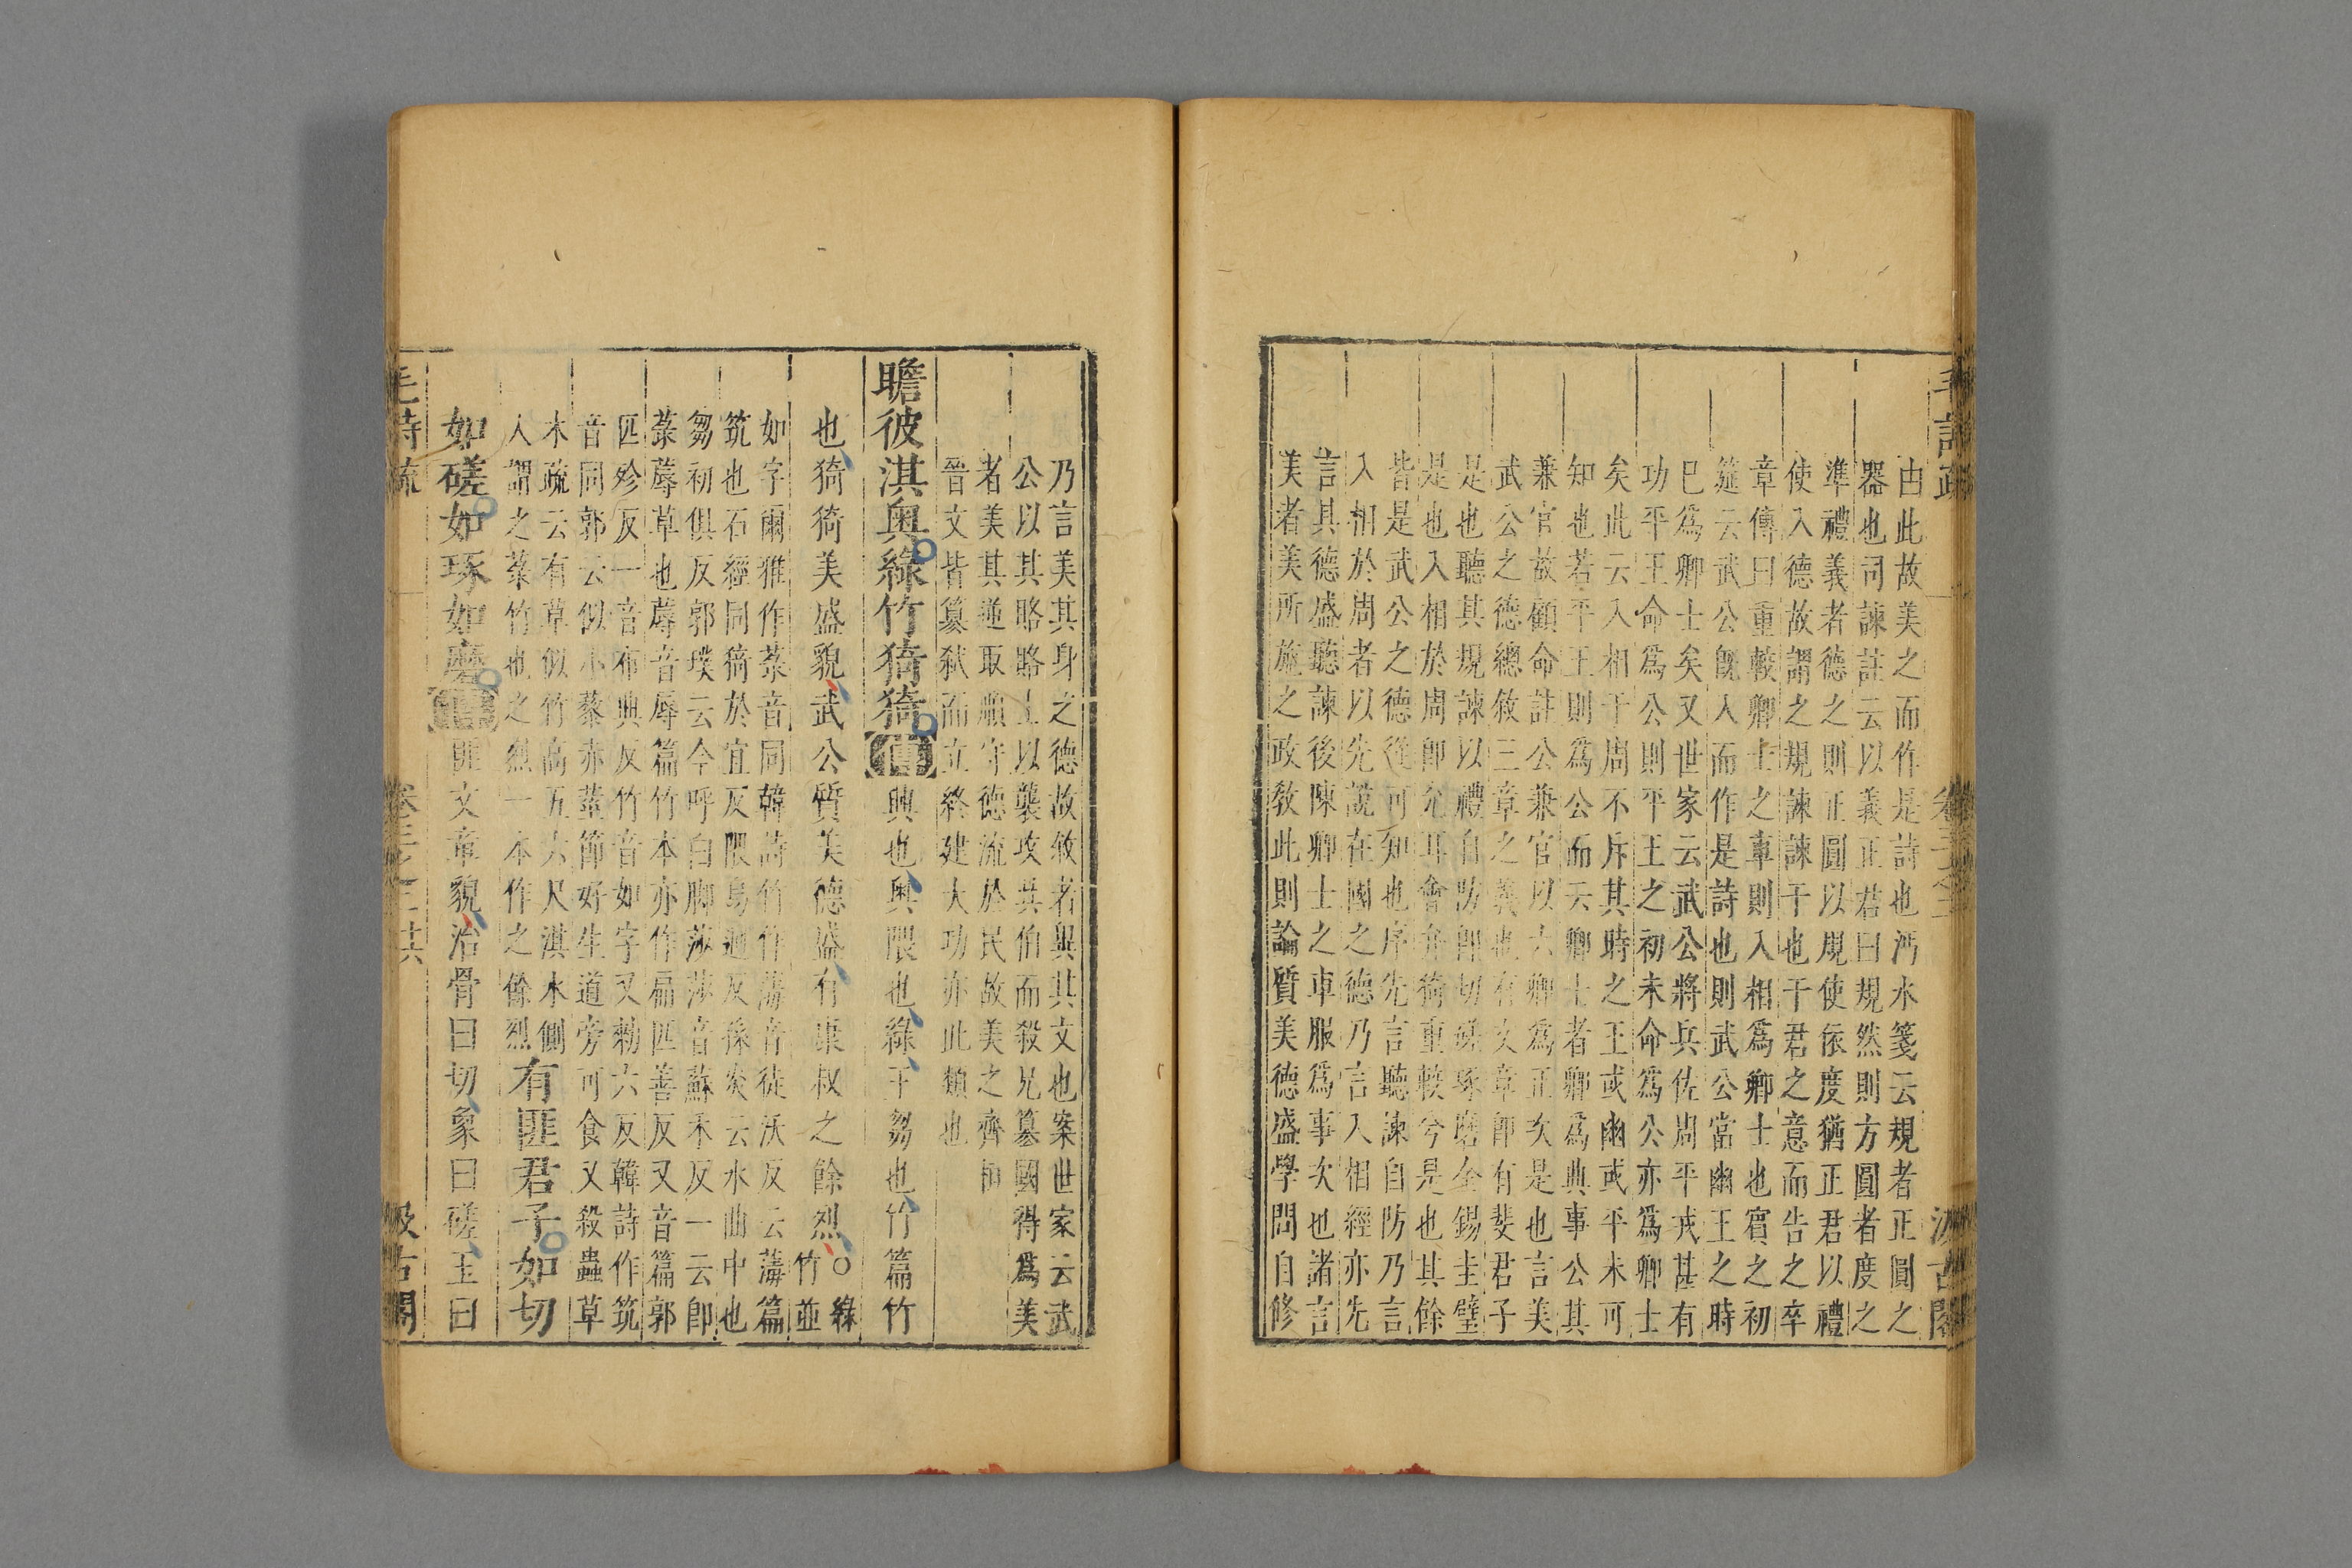 毛詩疏
卷三之二
汲古閣
由此故美之而作是詩也沔水箋云規者正圓之
器也司諫註云以義正君曰規然則方圓者度之
準禮義者德之則正圓以規使依度猶正君以禮
使入德故謂之規諫諫干也干君之意而告之卒
章傳曰重較卿士之車則入相爲卿士也賓之初
筵云武公旣入而作是詩也則武公當幽王之時
巳爲卿士矣又世家云武公將兵佐周平戎甚有
功平王命爲公則平王之初未命爲公亦爲卿士
矣此云入相于周不斥其時之王或幽或平未可
知也若平王則爲公而云卿士者卿爲典事公其
兼官故顧命註公兼官以六卿爲正次是也言美
武公之德總敘三章之義也有文章卽有斐君子
是也聽其規諫以禮自防卽切磋琢磨金錫圭璧
是也入相於周卽充耳會弁猗重較兮是也其餘
皆是武公之德從可知也序先言聽諫自防乃言
入相於周者以先說在國之德乃言入相經亦先
言其德盛聽諫後陳卿士之車服爲事次也諸言
美者美所施之政敎此則論質美德盛學問自修
乃言美其身之德故敘者異其文也案世家云武
公以其略賂士以襲攻共伯而殺兄簒國得爲美
者美其逆取順守德流於民故美之齊桓
晉文皆簒弑而立終建大功亦此類也
瞻彼淇奧綠竹猗猗傳興也奧隈也綠王芻也竹篇竹
也猗猗美盛貌武公質美德盛有康叔之餘烈○綠
竹並
如字爾雅作菉音同韓詩竹作薄音徒沃反云薄篇
筑也石經同猗於宜反隈烏迴反孫炎云水曲中也
芻初俱反郭璞云今呼白脚莎莎音蘇禾反一云卽
菉蓐草也蓐音辱篇竹本亦作扁匹善反又音篇郭
匹殄反一音布典反竹音如字又勑六反韓詩作筑
音同郭云似小藜赤莖節好生道旁可食又殺蟲草
木疏云有草似竹高五六尺淇水側
人謂之菉竹也之烈一本作之餘烈有匪君子如切
如磋如琢如磨傳匪文章貌治骨曰切象曰磋玉曰
毛詩疏
卷三之二
十六
汲古閣